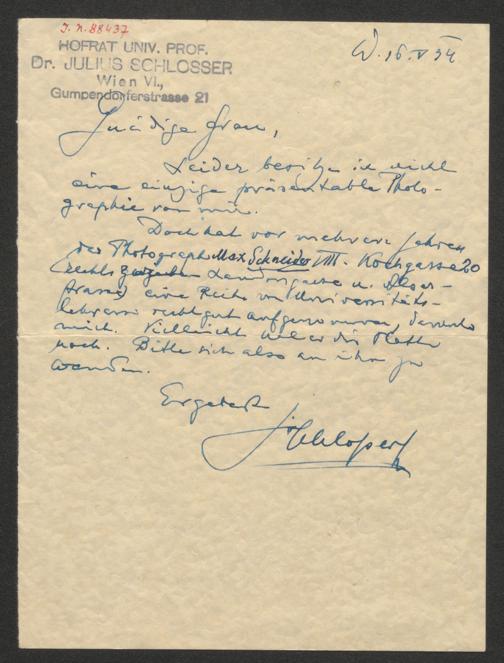 J. N. 88437
HOFRAT UNIV. PROF.
Dr. JULIUS SCHLOSSER
Wien VI.,
Gumpendorferstrasse 21
W. 16. V 34
Gnädige Frau,
Leider besitze ich nicht
eine einzige präsentable Photo-
graphie von mir.
Doch hat vor mehreren Jahren
der Photograph Max Schneider VIII. Kochgasse 20
eine Reihe von Universitäts-
lehrern recht gut aufgenommen, darunter
mich. Vielleicht hat er die Platte
noch. Bitte sich also an ihn zu
wenden.
Ergebenst
JSchlosser